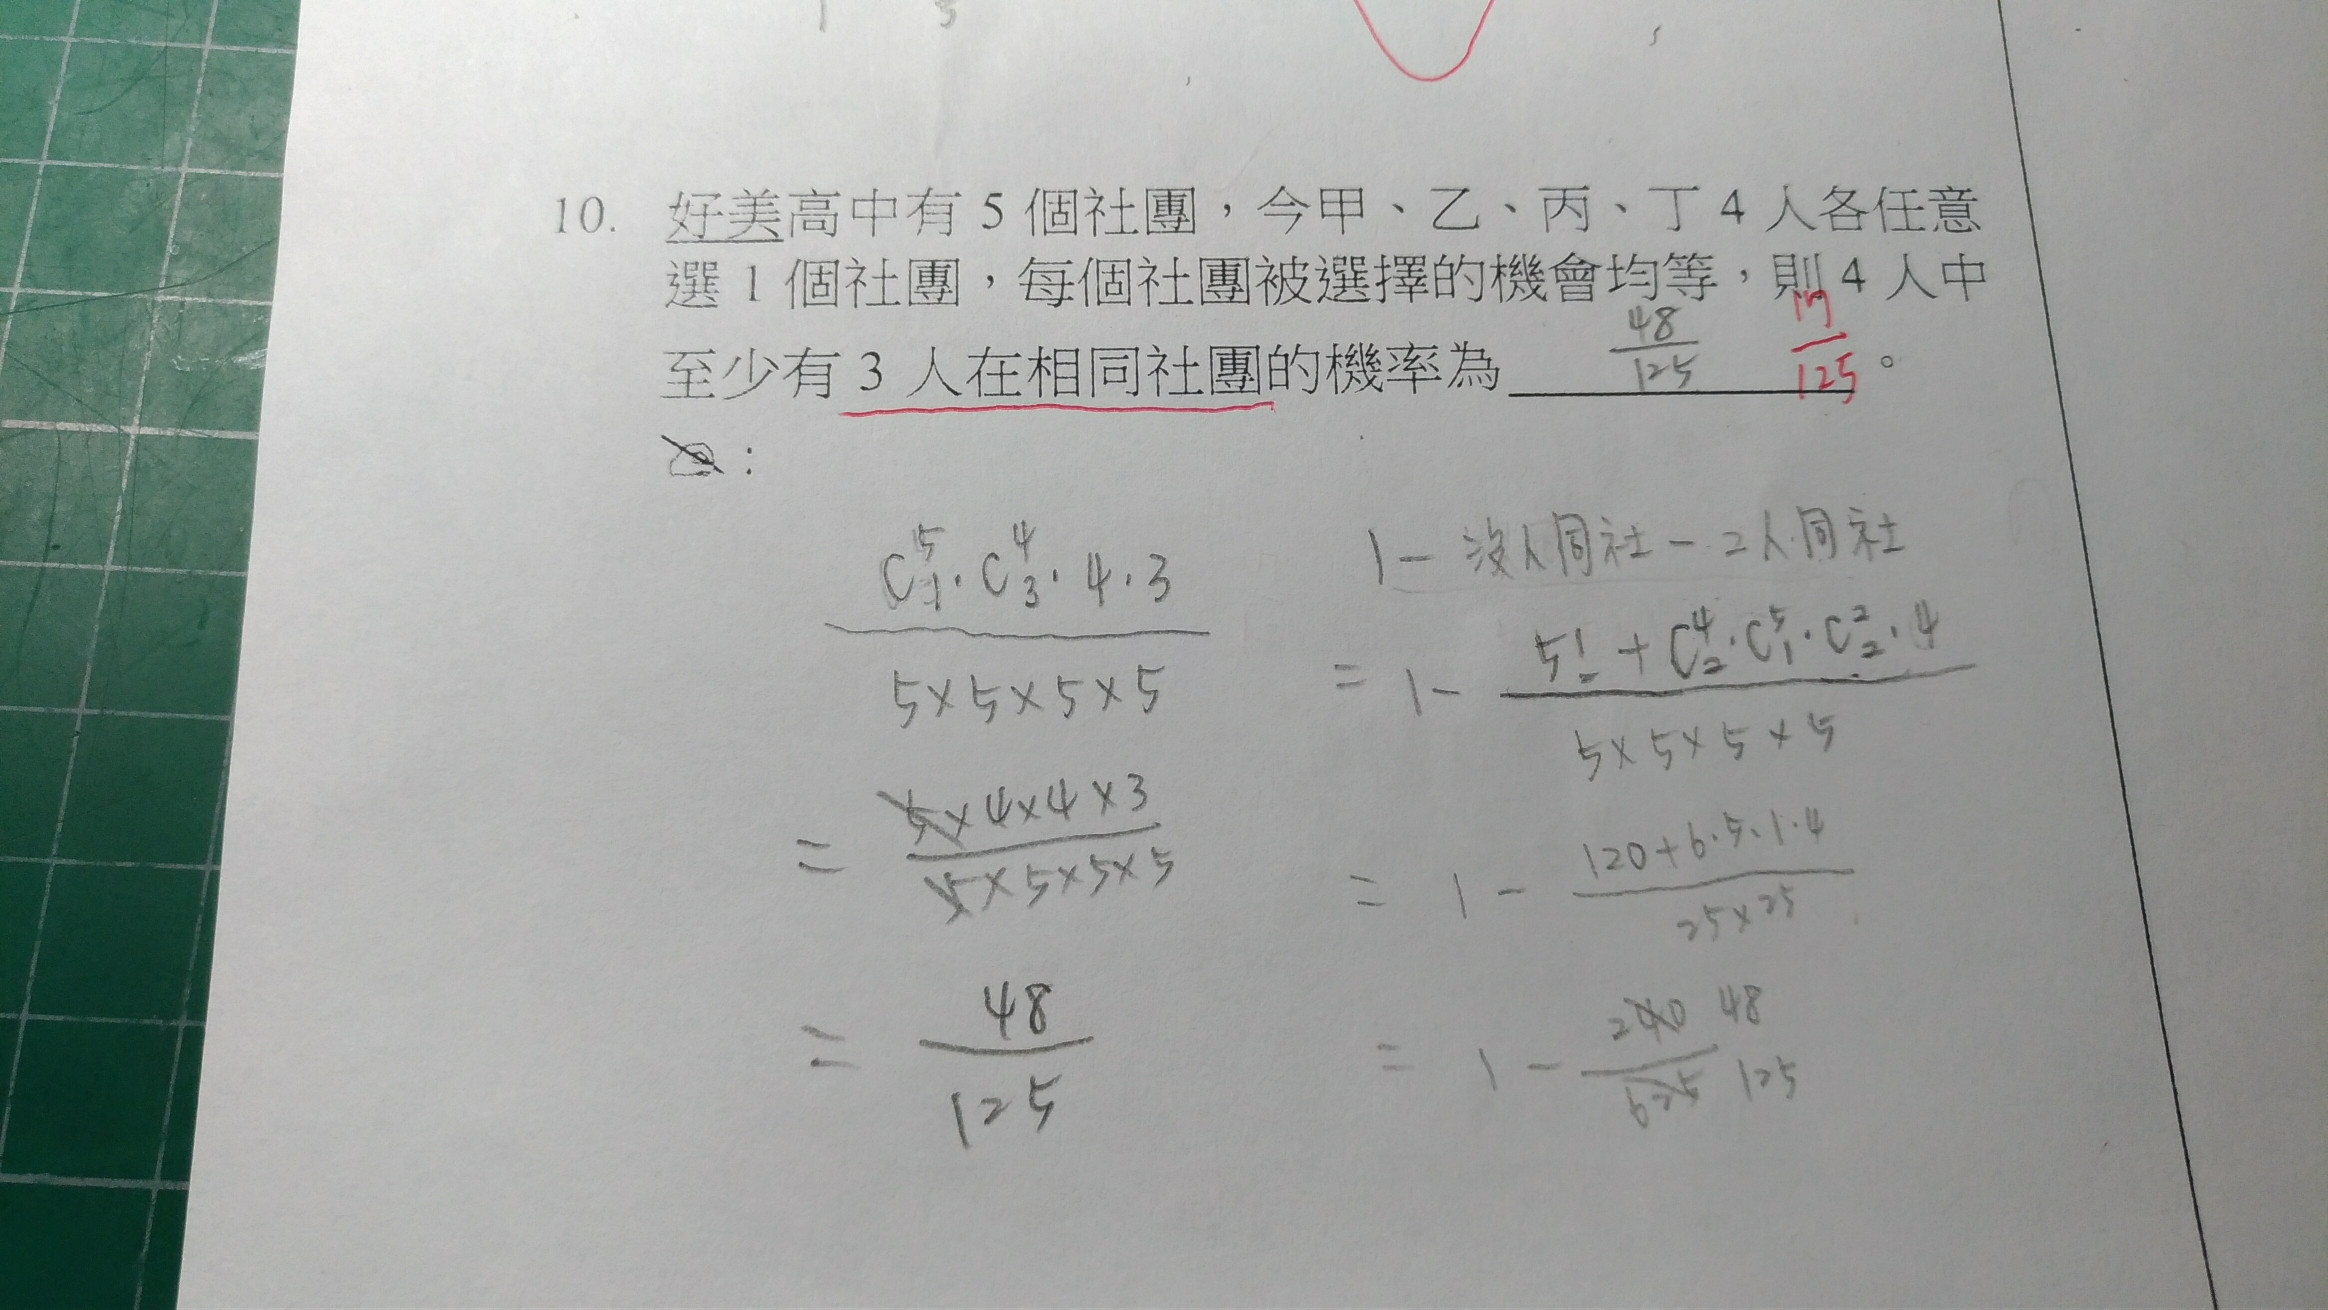 10. 好美高中有 5 個社團，今甲、乙、丙、丁 4 人各任意
選 1 個社團，每個社團被選擇的機會均等，則 4 人中
至少有 3 人在相同社團的機率為 48/125 17/125 。
:
C⁵₁·C⁴₃·4·3
5×5×5×5
= 5×4×4×3
5×5×5×5
= 48
125
1 - 沒人同社 - 2人同社
= 1 - 5! + C⁴₂·C⁵₁·C²₂·4
5×5×5×5
= 1 - 120+6·5·1·4
25×25
= 1 - 240 48
625 125